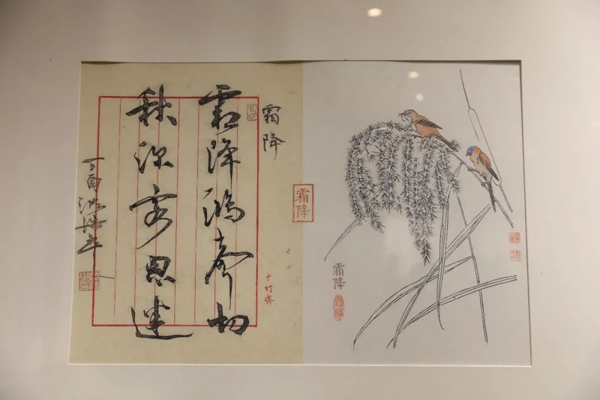 霜降
霜降鸿声切
秋深客思迷
丁酉
十竹斋
霜降
霜降